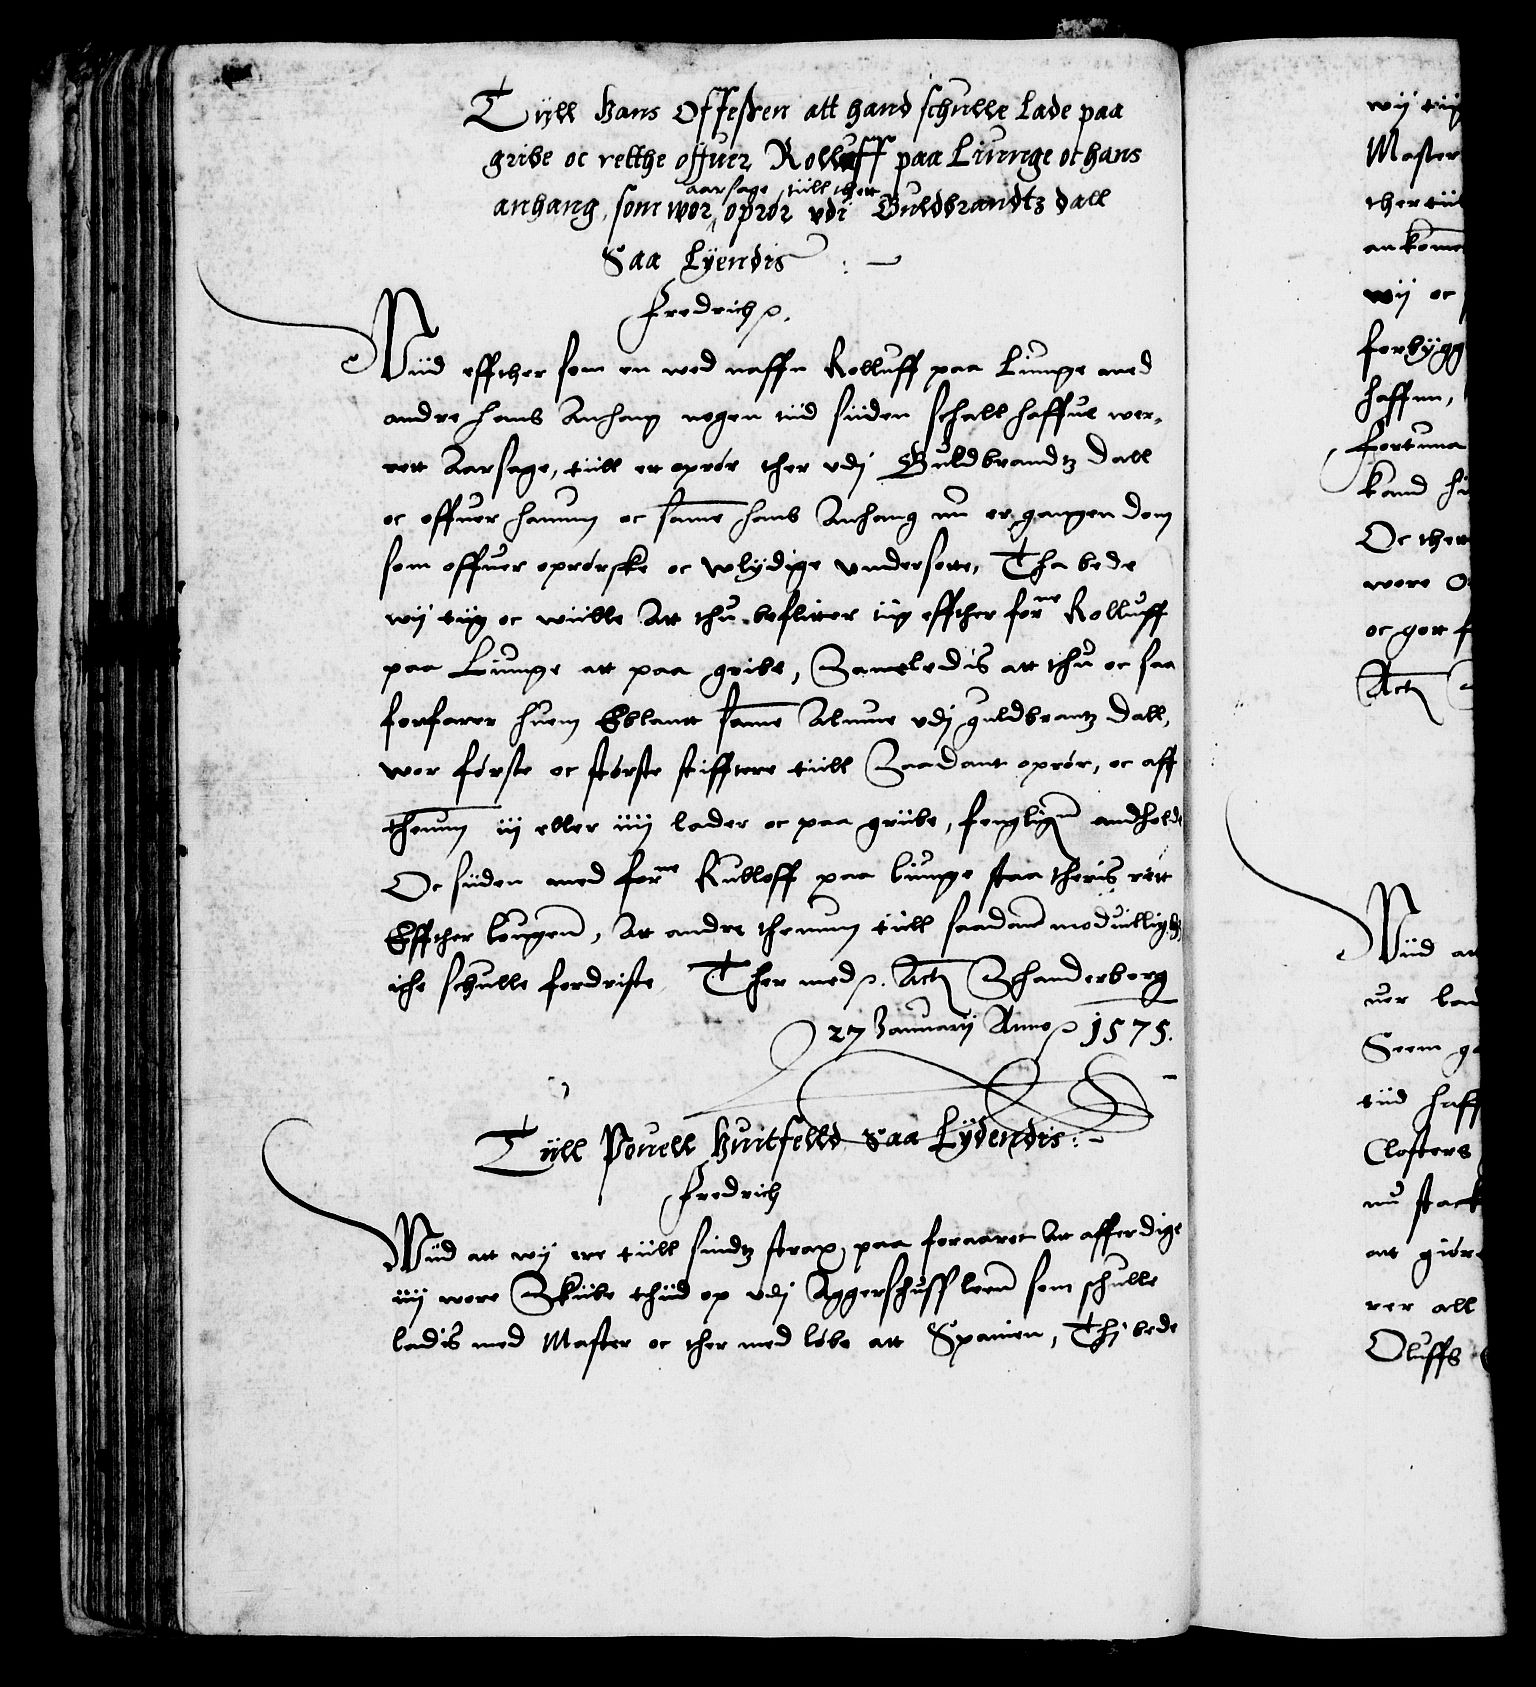 Tijll Hans Offessen att hand schulle lade paa
gribe oc retthe offuer Rolluff paa Liunge oc hans
anhang, som wor aarsage tiill thett opror vdi Guldbrandtz dall
Saa Lÿendis
Fredrich
Wiid effther som en wed naffn Rolluff paa Liunge med
andre hans Anhang nogen tiid siiden schall haffue wer-
rett Aarsage, tiill et oprør ther vdj Guldbrandtz dall
oc offuer hanum oc same hans Anhang nu er gangen dom
som offuer oprørske oc wlydige vndersotte, Tha bede
wij tiig oc wiille Att thu beflitter tiig effther forne Rolluff
paa Liunge att paa gribe, Sameledis att thu oc saa
forfarer huem Eblantt same Almue vdj guldbrantz dall,
wor første oc største stifftere tiill Saadant oprør, oc aff
thenum iij eller iiij lader oc paa griibe, fengligen andholde
Oc siiden med forne Rulloff paa liunge staa theris rett
Effther lougen, At andre thenum tiill saadan moduilligh
iche schulle fordriste Ther med Actt Schanderborg
27 Januarij Anno 1575.
Tiill Pouell Huitfelld Saa Lÿdendis
Fredrich
Wiid att wij ere tiill sindtz strax, paa foraaret At afferdige
iiij wore Skiibe thiid op vdj Aggershuss leen som schulle
ladis med Master oc ther med løbe att Spanien, Thj bede
wij tiig
Master
ther tiil
ankome
wij oc
forbÿgg
haffuu,
fortuna
kand
Oc ther
wore
oc gott
Actt
Wiid att
uer
Seem
tiid haff
Closters
nu stack
att giøre
rer all
Oluffs